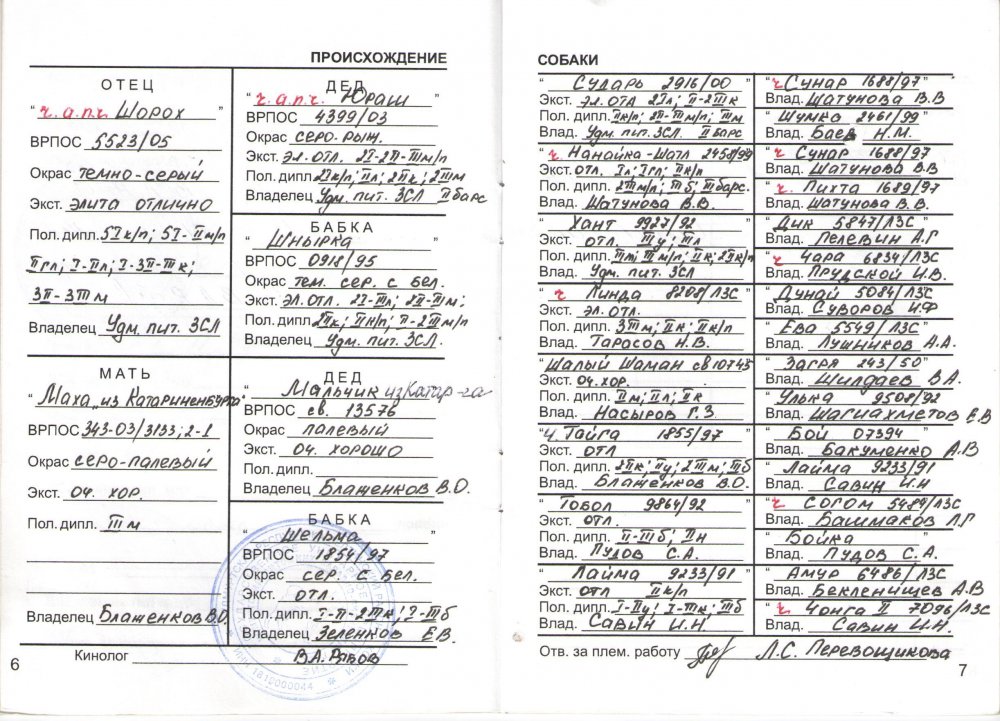 ПРОИСХОЖДЕНИЕ
ОТЕЦ
"ч.а.п.ч. Шорох"
ВРПОС 5523/05
Окрас темно-серый
Экст. элита отлично
Пол. дипл. 5I к/п; 5I-II м/п
II гл; I-II л; I-3II-III к;
3II-3III м
Владелец Удм. пит. ЗСЛ
МАТЬ
"Маха „из Катариненбурга"
ВРПОС 343-03/3133; 2-1
Окрас серо-палевый
Экст. оч. хор.
Пол. дипл. III м
Владелец Блаженков В.О.
ДЕД
"ч.а.п.ч. Юраш"
ВРПОС 4399/03
Окрас серо-рыж.
Экст. эл. отл. 2I-2II-III м/п
Пол. дипл. 2I к/п; II л; 2II к; 2III м
Владелец Удм. пит. ЗСЛ II барс
БАБКА
"Шнырка"
ВРПОС 0918/95
Окрас тем. сер. с бел.
Экст. эл. отл. 2I-III л; 2II-III м;
Пол. дипл. 2II к; II н/п; II-2III м/п
Владелец Удм. пит. ЗСЛ.
ДЕД
"Мальчик из Катар-га
ВРПОС св. 13576
Окрас палевый
Экст. оч. хорошо
Пол. дипл.
Владелец Блаженков В.О.
БАБКА
"Шельма"
ВРПОС 1854/97
Окрас сер. с бел.
Экст. отл.
Пол. дипл. I-II-2III к; I-III б
Владелец Зеленков Е.В.
Кинолог В.А. Рябов
6
СОБАКИ
"Сударь 2916/00"
Экст. эл. отл 2I л; II-2III к
Пол. дипл. II к/п; 2II-III м/п; III м
Влад. Удм. пит. ЗСЛ II барс
"ч. Нанайка-Шатл 2458/99
Экст. отл. I л; I гл; II к/п
Пол. дипл. 2III м/п; III б; III барс.
Влад. Шатунова В.В.
"Хант 9927/92"
Экст. отл. III у; III л
Пол. дипл. II м; III м/п; II к; 2II к/п
Влад. Удм. пит. ЗСЛ
"ч Линда 8208/ЛЗС
Экст. эл. отл.
Пол. дипл. 3III м; II к; II к/п
Влад. Тарасов Н.В.
"Шалый Шаман св 10745
Экст. оч. хор.
Пол. дипл. II м; II л; II к
Влад. Насыров Г.З
"ч. Тайга 1855/97"
Экст. отл
Пол. дипл. 2II к; II у; 2III м; III б
Влад. Блаженков В.О.
"Тобол 9864/92"
Экст. отл.
Пол. дипл. II-III б; II н
Влад. Пудов С.А.
"Лайма 9233/91"
Экст. отл II к/п
Пол. дипл. I-II у; I-III к; III б
Влад. Савин И.Н
"ч Сунар 1688/97"
Влад. Шатунова В.В
"Шумка 2461/99"
Влад. Баев Н.М.
"ч Сунар 1688/97
Влад. Шатунова В.В
"ч. Пихта 1689/97
Влад. Шатунова В.В.
"Дик 5847/ЛЗС
Влад. Пелевин А.Г
"ч Чара 6834/ЛЗС
Влад. Прудской И.В.
"Дунай 5084/ЛЗС
Влад. Суворов И.Ф
"Ева 5549/ЛЗС
Влад. Лушников А.А.
"Загря 243/50"
Влад. Шилдаев В.А.
"Улька 9508/92
Влад. Шагиахметов Е.В
"Бой 07394
Влад. Бакуменко А.В
"Лайма 9233/91
Влад. Савин И.Н
"ч Согом 5484/ЛЗС
Влад. Башмаков Л.Г
"Бойка
Влад. Пудов С.А.
"Амур 6486/ЛЗС
Влад. Бекленищев А.В
"ч Чонга II 7096/ЛЗС
Влад. Савин И.Н.
Отв. за плем. работу Л.С. Перевощикова
7